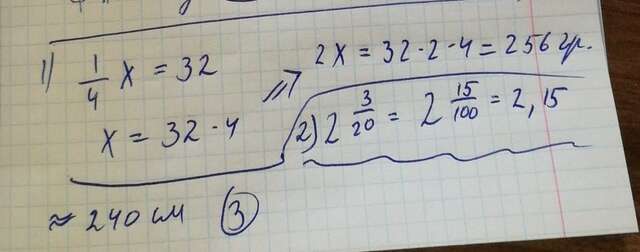 1) 1/4 x = 32
x = 32 · 4
=> 2x = 32 · 2 · 4 = 256 гр.
2) 2 3/20 = 2 15/100 = 2,15
≈ 240 см ③